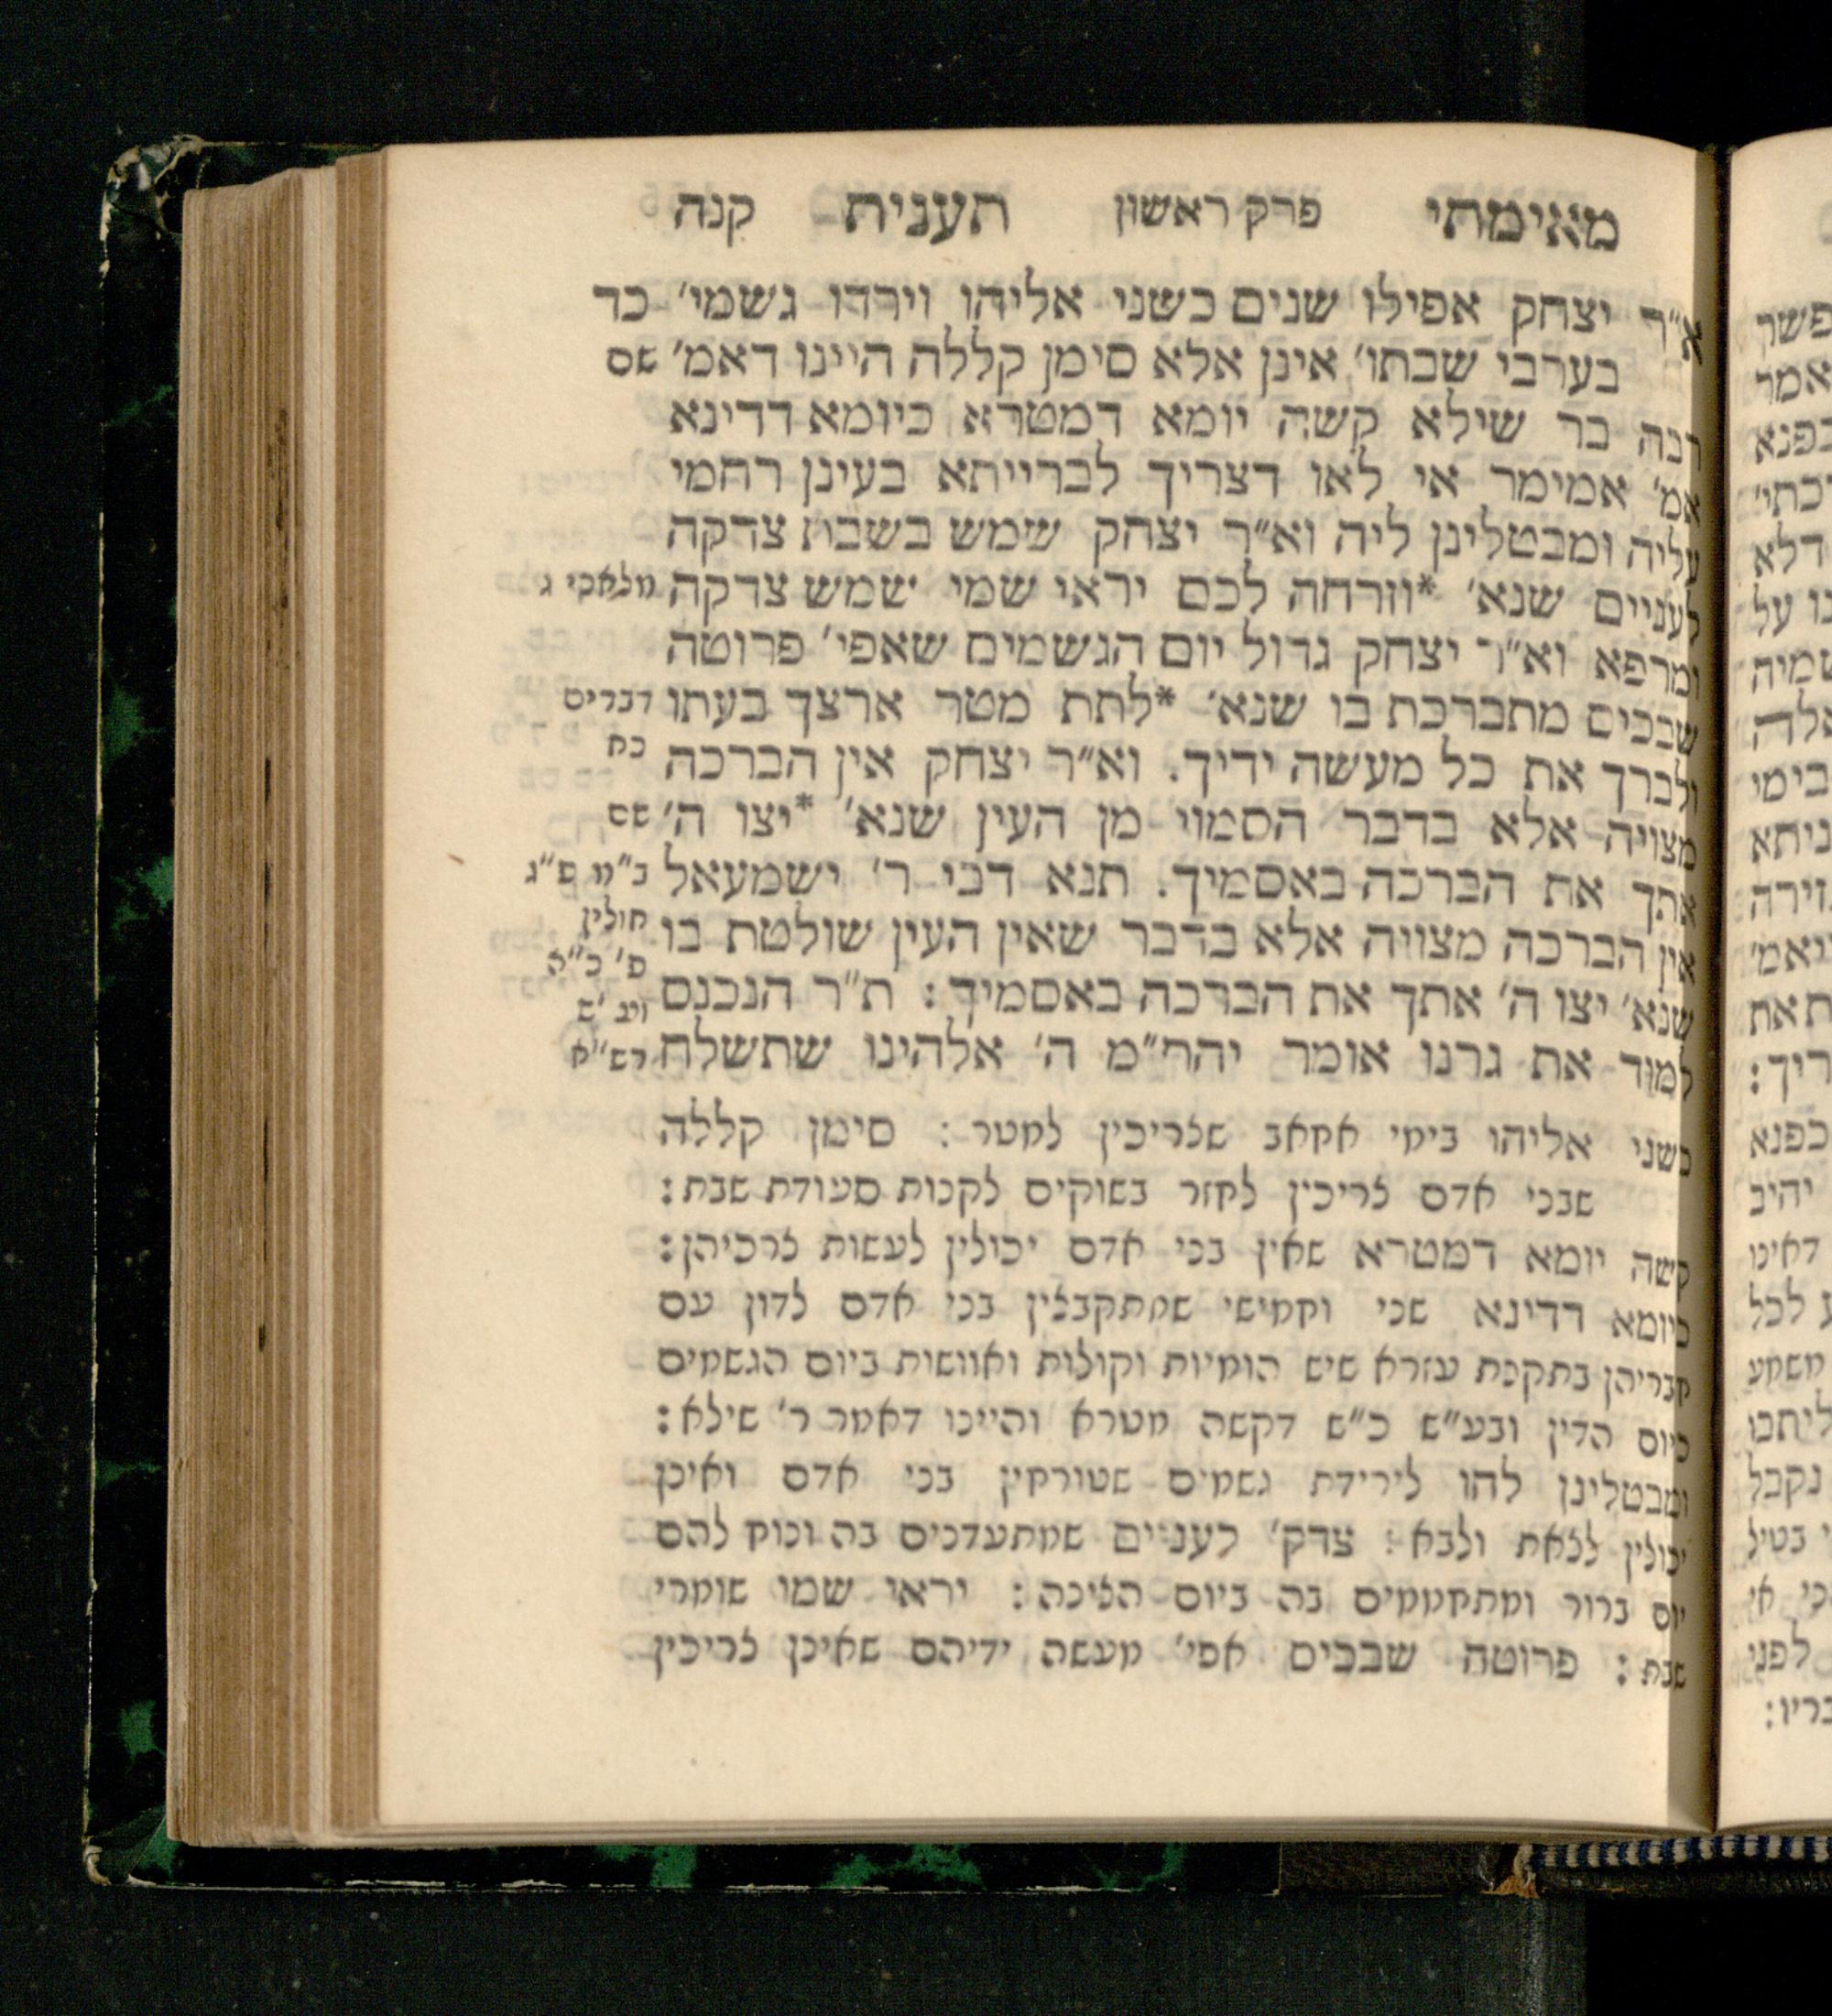 מאימתי פרק ראשון תענית קנה
א״ר יצחק אפילו שנים כשני אליהו וירדו גשמי׳ כד
בערבי שבתו׳ אינן אלא סימן קללה היינו דאמ׳ שם
רבה בר שילא קשה יומא דמטרא כיומא דדינא
אמ׳ אמימר אי לאו דצריך לברייתא בעינן רחמי
עליה ומבטלינן ליה וא״ר יצחק שמש בשבת צדקה
לעניים שנא׳ *וזרחה לכם יראי שמי שמש צדקה מלאכי ג
ומרפא וא״ר יצחק גדול יום הגשמים שאפי׳ פרוטה
שבכים מתברכת בו שנא׳ *לתת מטר ארצך בעתו דברים
ולברך את כל מעשה ידיך. וא״ר יצחק אין הברכה כח
מצויה אלא בדבר הסמוי מן העין שנא׳ *יצו ה׳ שם
אתך את הברכה באסמיך. תנא דבי ר׳ ישמעאל ב״מ פ״ג
אין הברכה מצויה אלא בדבר שאין העין שולטת בו חולין
פ׳ כ״ה
שנא׳ יצו ה׳ אתך את הברכה באסמיך: ת״ר הנכנס
וע׳ ש
למוד את גרנו אומר יהר״מ ה׳ אלהינו שתשלח רש״א
כשני אליהו בימי אחאב שצריכין למטר: סימן קללה
שבני אדם צריכין לחזר בשוקים לקנות סעודת שבת:
קשה יומא דמטרא שאין בני אדם יכולין לעשות צרכיהן:
כיומא דדינא שני וחמישי שמתקבצין בני אדם לדון עם
חבריהן בתקנת עזרא שיש הומיות וקולות ואוושות ביום הגשמים
כיום הדין ובע״ש כ״ש דקשה מטרא והיינו דאמר ר׳ שילא:
ומבטלינן להו לירידת גשמים שטורחין בני אדם ואינן
יכולין לצאת ולבא: צדק׳ לעניים שמתעדנים בה ונוח להם
יום ברור ומתחממים בה ביום הצינה: יראי שמו שומרי
שבת: פרוטה שבכים אפי׳ מעשה ידיהם שאינן צריכין